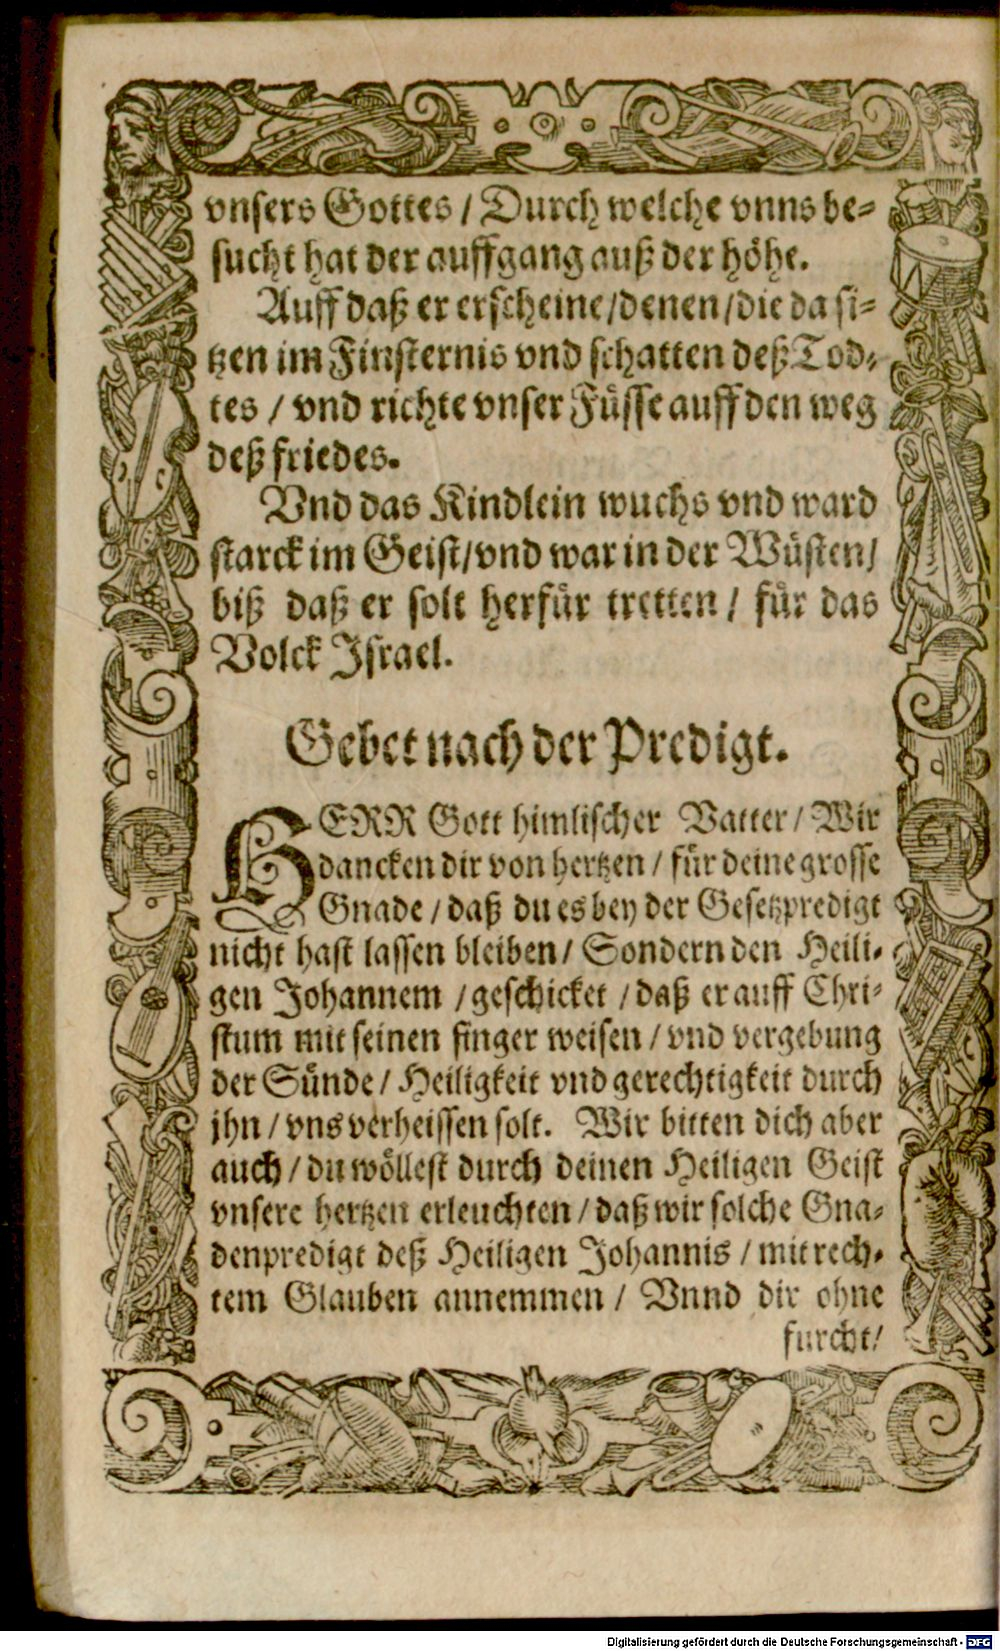 vnsers Gottes / Durch welche vnns be=
sucht hat der auffgang auß der höhe.
Auff daß er erscheine/denen/die da si=
tzen im Finsternis vnd schatten deß Tod=
tes / vnd richte vnser Füsse auff den weg
deß friedes.
Vnd das Kindlein wuchs vnd ward
starck im Geist/vnd war in der Wüsten/
biß daß er solt herfür tretten / für das
Volck Israel.
Gebet nach der Predigt.
HERR Gott himlischer Vatter/ Wir
dancken dir von hertzen / für deine grosse
Gnade / daß du es bey der Gesetzpredigt
nicht hast lassen bleiben/ Sondern den Heili=
gen Johannem /geschicket / daß er auff Chri=
stum mit seinen finger weisen / vnd vergebung
der Sünde/ Heiligkeit vnd gerechtigkeit durch
jhn / vns verheissen solt. Wir bitten dich aber
auch / du wöllest durch deinen Heiligen Geist
vnsere hertzen erleuchten / daß wir solche Gna=
denpredigt deß Heiligen Johannis / mit rech=
tem Glauben annemmen / Vnnd dir ohne
furcht/
Digitalisierung gefördert durch die Deutsche Forschungsgemeinschaft - DFG